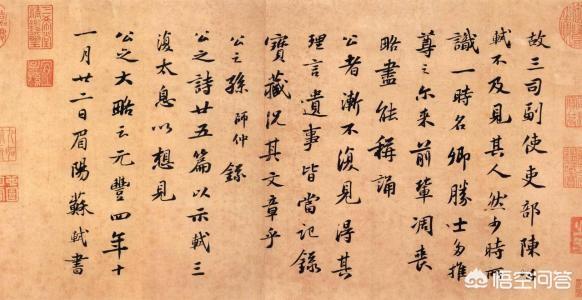 故三司副使吏部陳公
軾不及見其人然少時所
識一時名卿勝士多推
尊之尔來前輩凋喪
略盡能稱誦
公者漸不復見得其
理言遺事皆當記錄
寶藏況其文章乎
公之孫師仲錄
公之詩廿五篇以示軾三
復太息以想見
公之大略云元豐四年十
一月廿二日眉陽蘇軾書
悟空问答